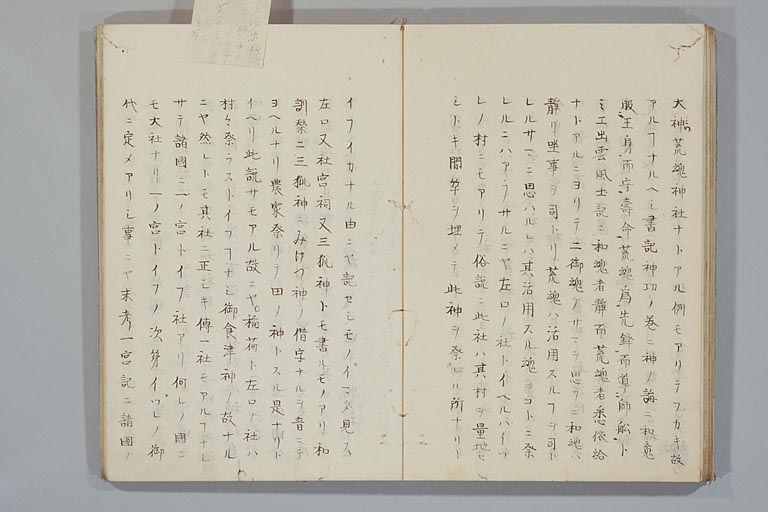 大神荒魂神社ナトアル例モアリテフカキ故
アルフナルヘシ書記神功ノ巻ニ神ノ誨ニ和魂
服王身而守壽命荒魂爲先鋒而導師船ト
ミエ出雲風土記ニ和魂者静而荒魂者悉依給
ナトアルニヨリテ二御魂ノサマヲ思フヨ和魂ハ
静リ坐事ヲ司トリ荒魂ハ活用スルフヲ司ト
レルサマニ思ハルレハ其活用スル魂ヲコトニ祭
レルニハアラサルニヤ左口ノ社トイヘルハイツ
レノ村ニモアリテ俗説ニ此社ハ其村ヲ量地セ
シトキ間竿ヲ埋メテ此神ヲ祭レル所ナリト
イフイカナル由ニヤ記セシモノイマタ見ス
左口又社宮祠又三狐神トモ書ルモノアリ和
訓栞ニ三狐神ハみけつ神ノ借字ナルヲ音ニテ
ヨヘルナリ農家祭リテ田ノ神トスル是ナリト
イヘリ此説サモアル故ニヤ稲荷ト左口ノ社ハ
村々祭ラストイフフナシ御食津神ノ故ナル
ニヤ然レトモ其社ニ正シキ傳一社モアルフナシ
サテ諸國ニ一ノ宮トイフ社アリ何レノ國ニ
モ大社ナリ一ノ宮トイフノ次第イツレノ御
代ニ定メアリシ事ニヤ未考一宮記ニ諸國ノ